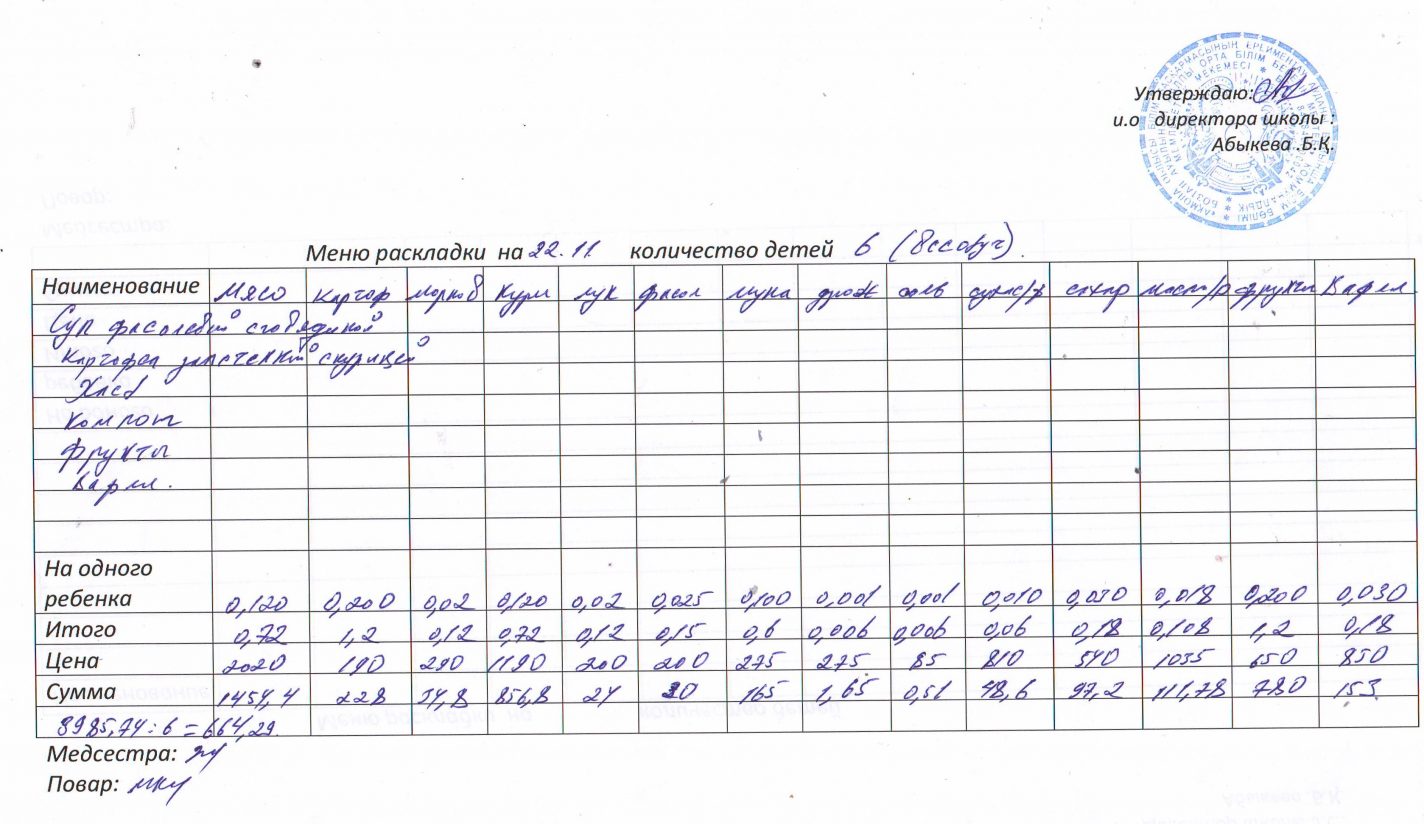 Утверждаю:
и.о директора школы :
Абыкева .Б.Қ.
Меню раскладки на 22.11 количество детей 6 (
Наименование Мясо Картоф морков Куры лук фасол мука дрож соль сухос/ф сахар масл/р фрукты Вафли
Суп фасолевый с говядиной
Картофел запеченный с курицей
Хлеб
Компот
Фрукты
Вафли.
На одного
ребенка 0,120 0,200 0,02 0,120 0,02 0,025 0,100 0,001 0,001 0,010 0,030 0,018 0,200 0,030
Итого 0,72 1,2 0,12 0,72 0,12 0,15 0,6 0,006 0,006 0,06 0,18 0,108 1,2 0,18
Цена 2020 190 290 1190 200 200 275 275 85 810 540 1035 650 850
Сумма 1454,4 228 34,8 856,8 24 30 165 1,65 0,51 48,6 97,2 111,78 780 153
3985,74 : 6 = 664,29
Медсестра:
Повар: